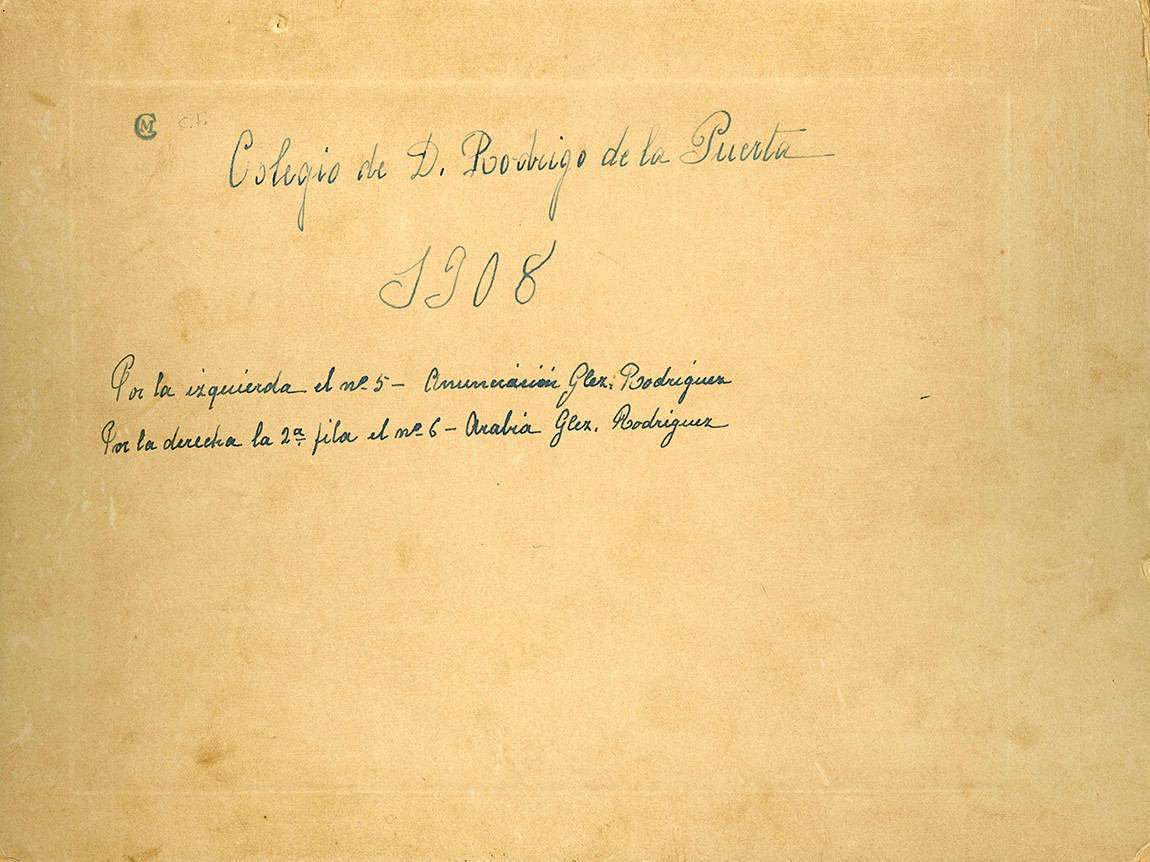 CM C.F.
Colegio de D. Rodrigo de la Puerta
1908
Por la izquierda el nº 5 - Anunciación Glez. Rodríguez
Por la derecha la 2ª fila el nº 6 - Arabia Glez. Rodríguez